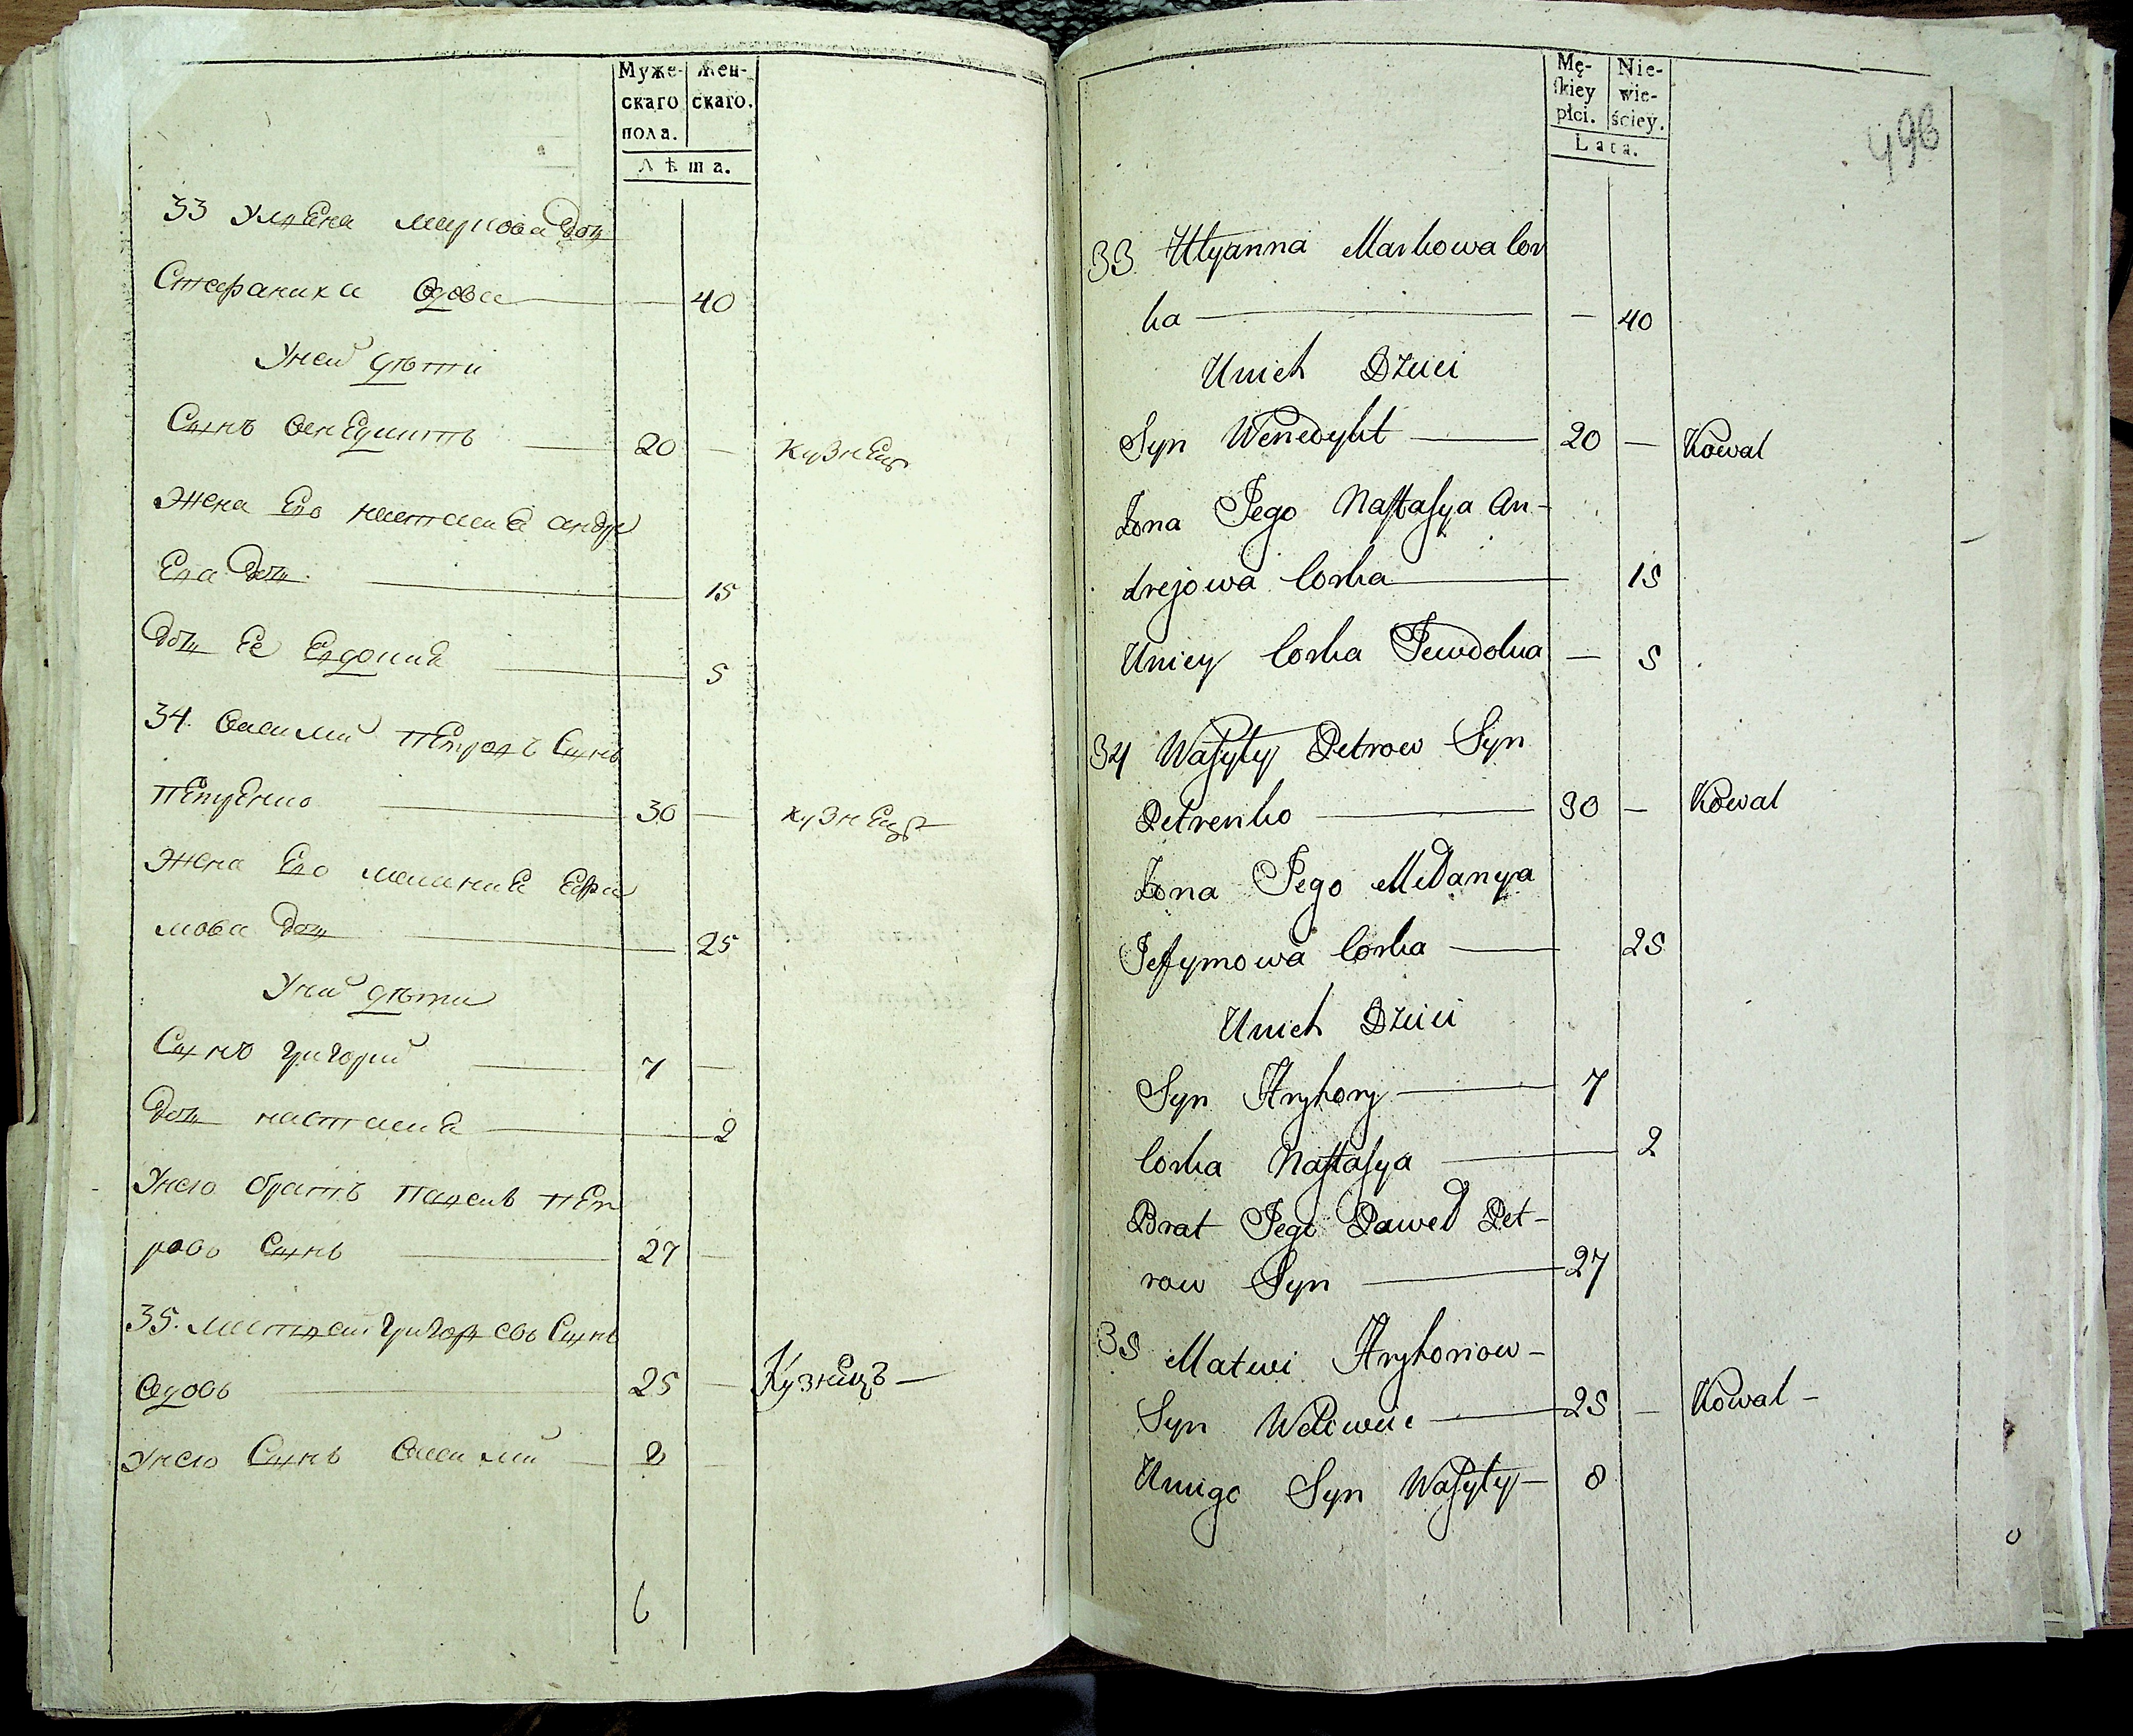 Муже- Жен-
скаго скаго.
пола.
Лѣта.
33 Улѣена маркова доч
Стефаниха вдова — — 40
У ней дѣти
Сынъ венедиктъ — 20 — кузнецъ
Жена Его настасиа андре
Ева доч — 15
Доч Ее Евдокиа — 5
34. василий Петровъ Сынъ
Петренко — 30 — кузнецъ
Жена Его маланиа Ефи
мова доч — 25
У них дѣти
Сынъ григорий — 7 —
Доч настасиа — 2
У него братъ павелъ Пет
ровъ Сынъ — 27 —
35. григоревъ Сынъ
25 — Кузнецъ —
У него Сынъ василий — 8 —
6
Mę- Nie-
skiey wie-
płci. ściey.
Lata.
496
33 Ulyanna Markowa Cor
ka — — 40
Unich Dzieci
Syn Wenedykt — 20 — Kowal
Żona Jego Nastasya An-
drejowa Corka — 15
Uniey Corka Jewdokia — 5
34 Wasyly Petrow Syn
Petrenko — 30 — Kowal
Żona Jego Mełanya
Jefymowa Corka — 25
Unich Dzieci
Syn Hryhory — 7
Corka Nastasya — 2
Brat Jego Paweł Pet-
row Syn — 27
35 Matwi Hryhoriow-
Syn — 25 — Kowal —
Uniego Syn Wasyly — 8